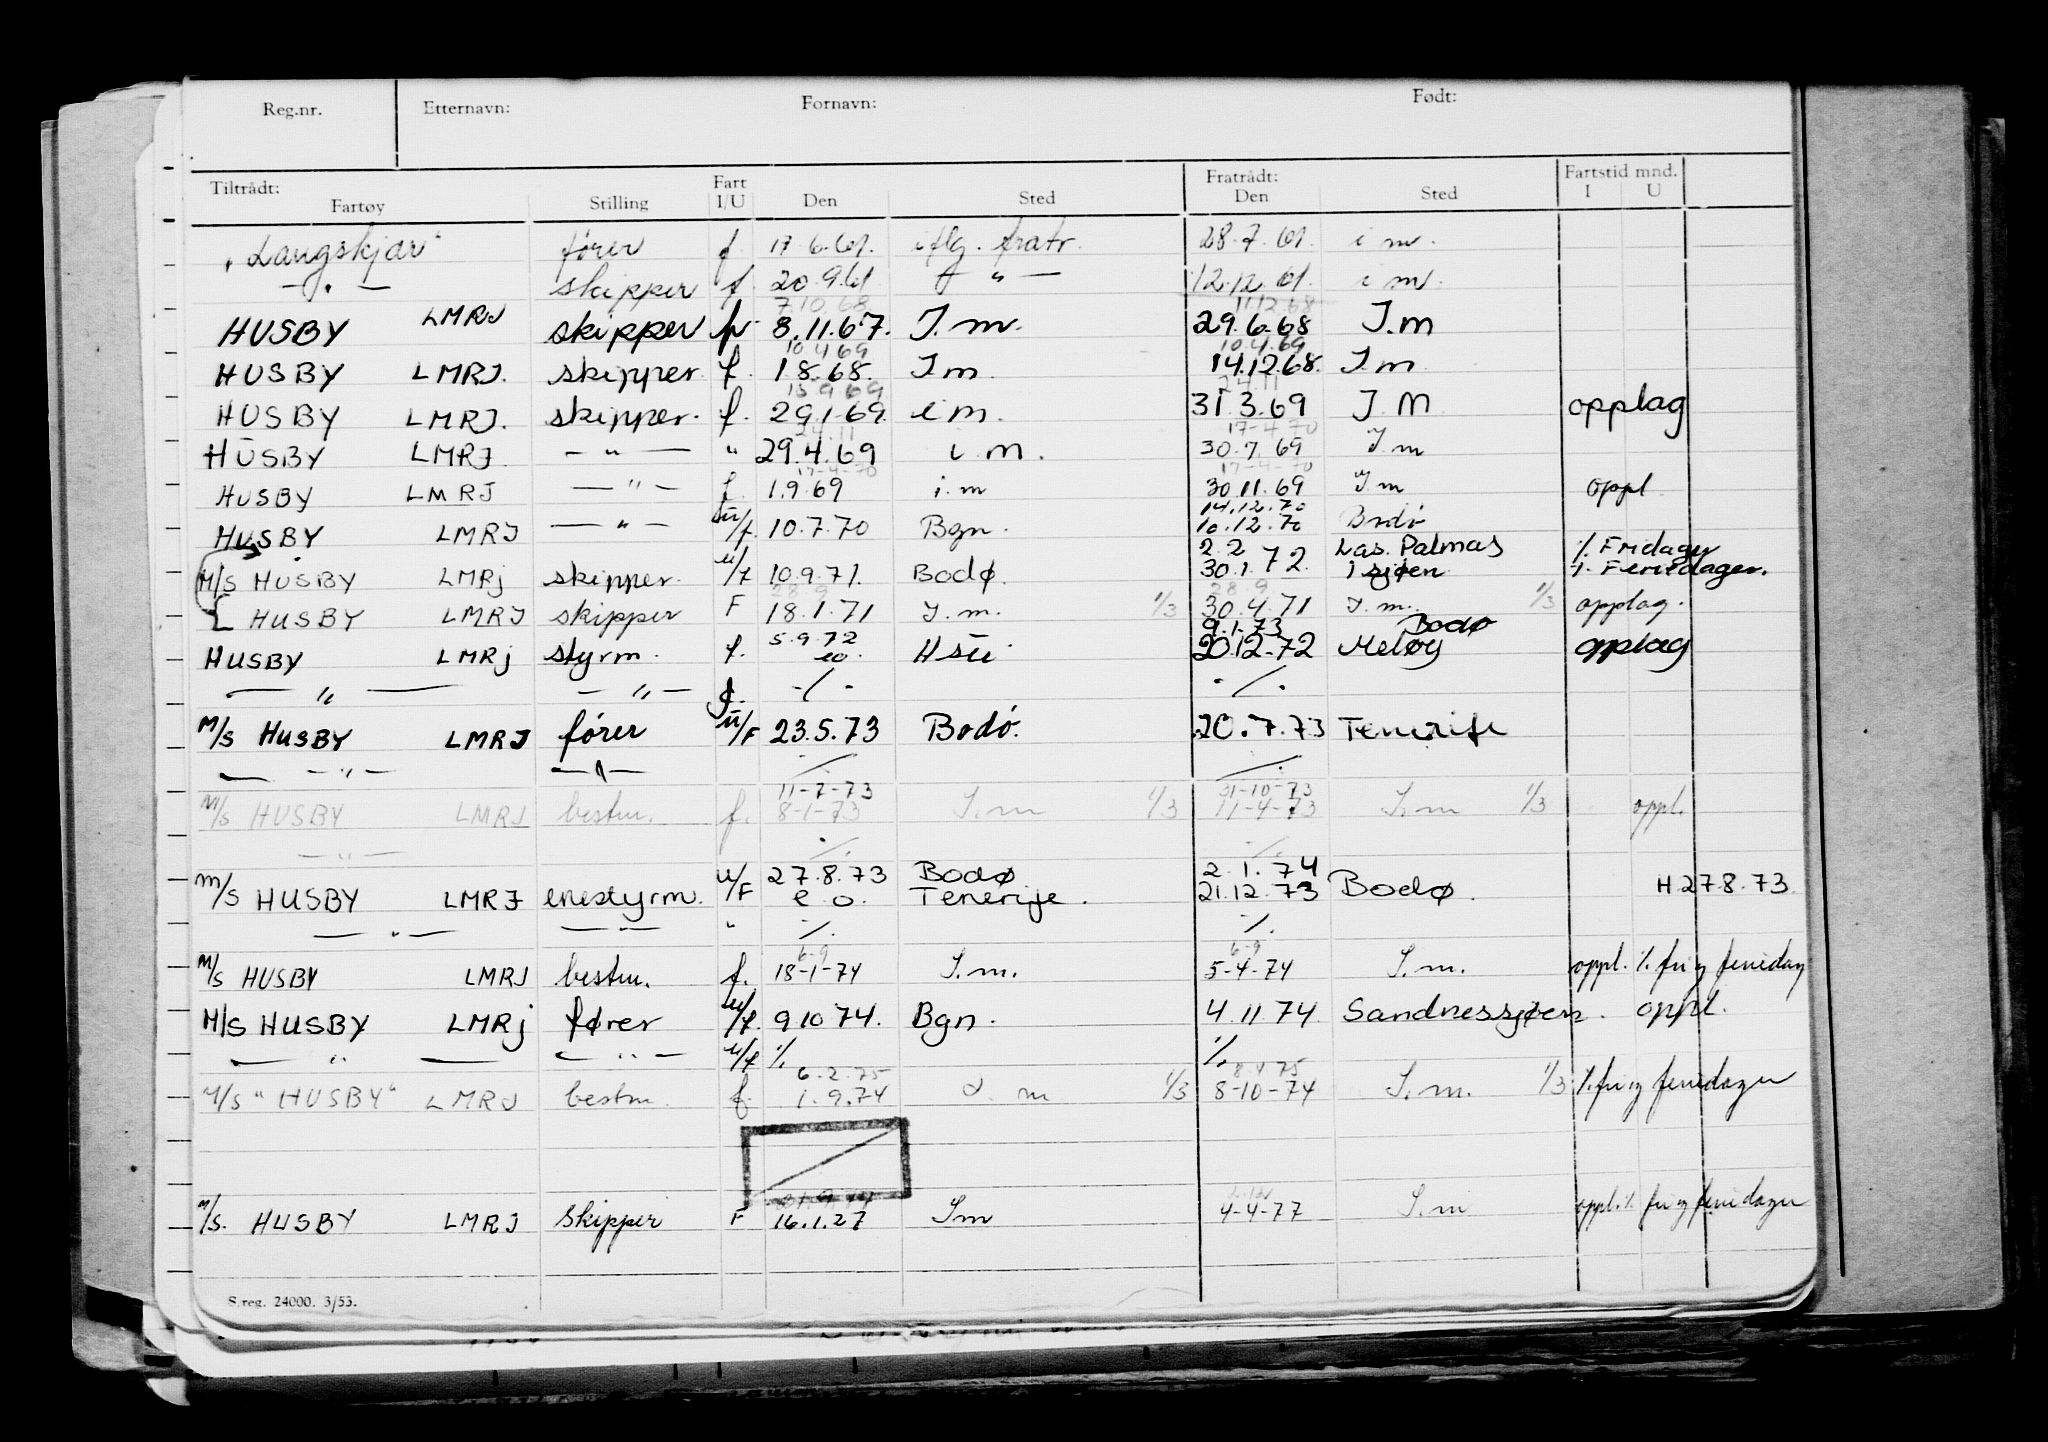 Reg.nr. Etternavn: Fornavn: Født:
Tiltrådt: Fratrådt: Fartstid mnd.
Fartøy Stilling Fart I/U Den Sted Den Sted I U
"Langskjær" fører f. 17.6.61. iflg. fratr. 28.7.61. i m.
— " — skipper f. 20.9.61 — " — 12.12.61. i m.
7 10 68 11 12 68
HUSBY LMRJ skipper 8.11.67. I.m. 29.6.68 I.m
10 4 69 10.4.69
HUSBY LMRJ. skipper f. 1 8.68 I m. 14.12.68. I.m
15 9 69 24.11
HUSBY LMRJ. skipper. f. 29.1.69. i m. 31.3.69 I.M opplag
24.11 17-4-70
HUSBY LMRJ — " — " 29.4.69 i.m. 30.7.69 I m
17-4-70 17-4-70
HUSBY LMRJ — " — f. 1.9.69 i.m 30.11.69 I m oppl
14.12.70
HUSBY LMRJ — " — u/f. 10.7.70 Bgn. 10.12.70 Bodø
2.2 Las. Palmas ./. Fridager
M/S HUSBY LMRj skipper. u/f 10.9.71. Bodø. 30.1.72. I sjøen ./. Feriedager.
28.9 28.9
HUSBY LMRJ skipper F 18.1.71 I.m. 1/3 30.4.71 I.m. 1/3 opplag.
5.9.72 9.1.73 Bodø
HUSBY LMRj styrm. f. eo. Hsü 20.12.72 Meløy opplag
— " — — " — f. ./. ./.
M/S HUSBY LMRJ fører u/F 23.5.73 Bodö. 20.7.73 Tenerife
— " — — " — ./. ./.
11-7-73 31-10-73
M/S HUSBY LMRJ bestm. f. 8-1-73 I.m 1/3 11-4-73 I.m 1/3 oppl.
— " — ./. ./.
27.8.73 Bodø 2.1.74
M/S HUSBY LMRJ enestyrm. u/F e o. Tenerife. 21.12.73 Bodø. H 27 8.73
— " — — " — " ./. ./.
6-9 6-9
M/S HUSBY LMRJ bestm. f. 18-1-74 I.m. 5-4-74 I.m. oppl. ./. fri og feriedag
M/S HUSBY LMRj fører u/f. 9 10 74. Bgn. 4.11.74 Sandnessjøen. oppl.
— " — — " — u/f ./. ./.
6.2.75 8.4 75
M/S "HUSBY" LMRJ bestm. f. 1.9.74 I. m 1/3 8-10-74 I.m. 1/3 ./. fri og feriedager
M/S. HUSBY LMRJ Skipper F 16.1.27 Im 4-4-77 I.m oppl. ./. fri og feriedager
S.reg. 24000. 3/53.